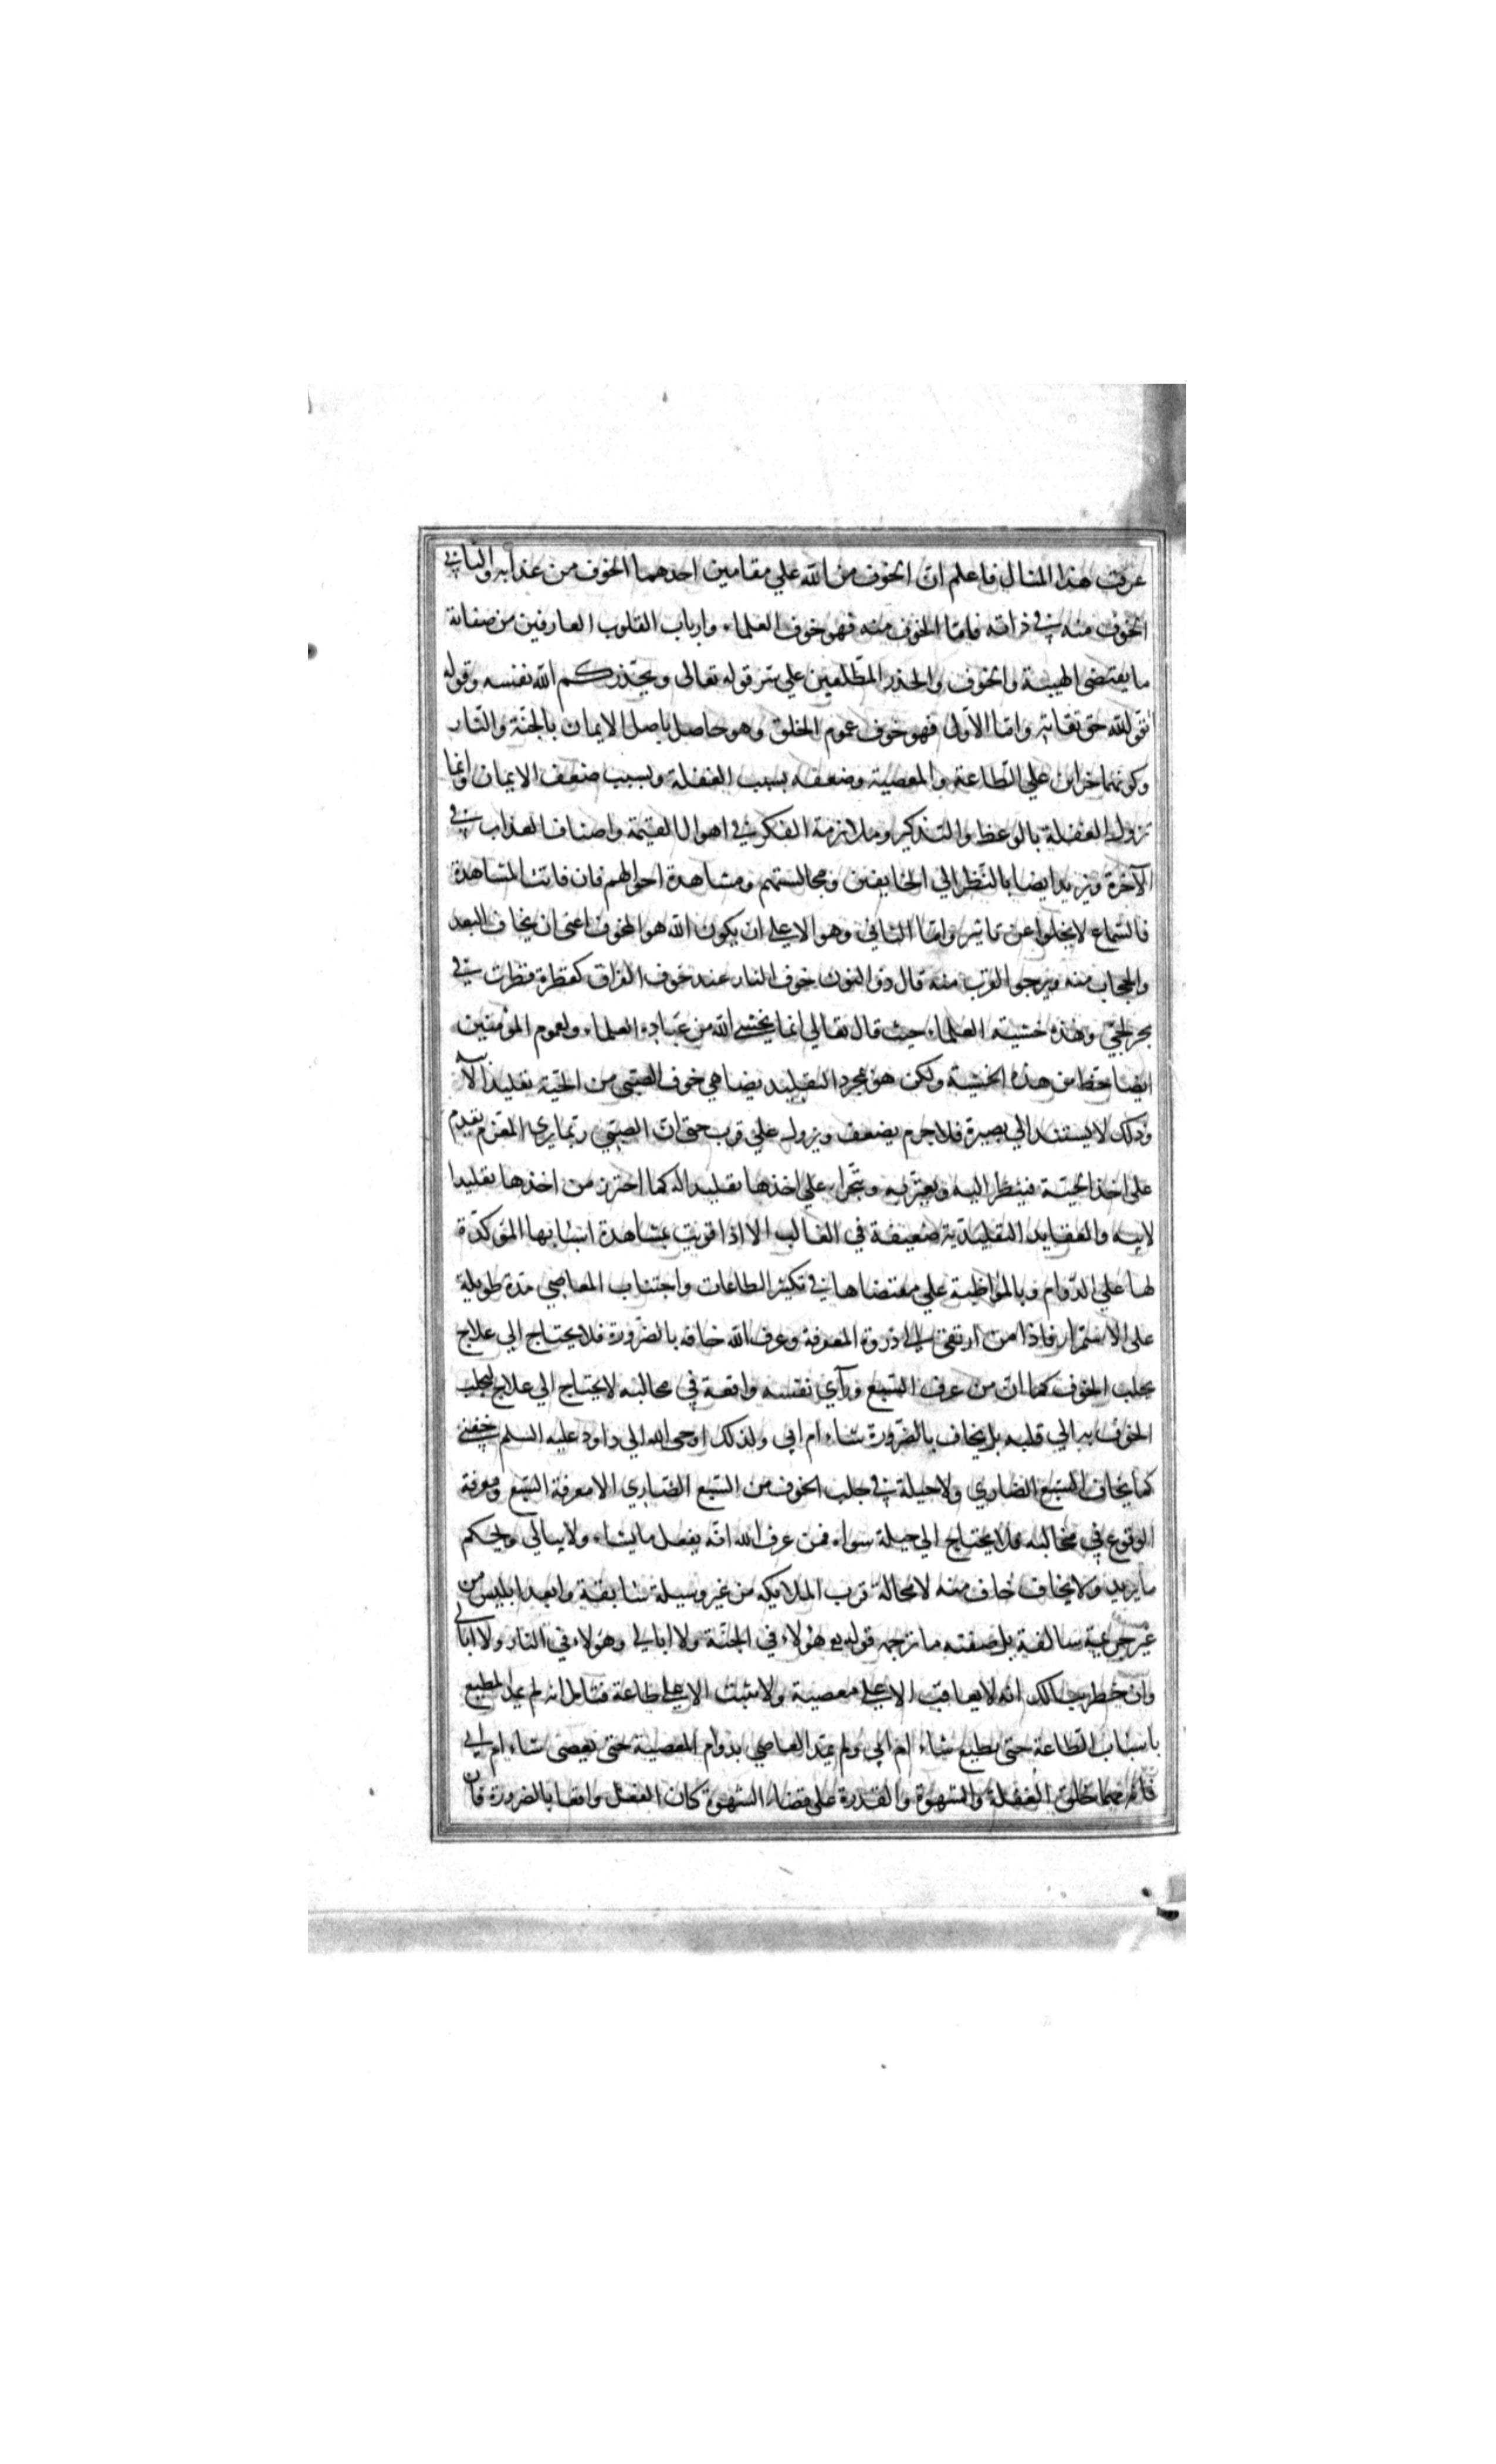 عرفت هذا المثال فاعلم ان الخوف من الله علي مقامين احدهما الخوف من عذابه والثاني
الخوف منه في ذاته فاما الخوف منه فهو خوف العلماء وارباب القلوب العارفين من صفاته
ما يقتضي الهيبة والخوف والحذر المطلعين علي سر قوله تعالى ويحذركم الله نفسه وقوله
اتقوا الله حق تقاته واما الاول فهو خوف عموم الخلق وهو حاصل باصل الايمان بالجنة والنار
وكونهما جزاين علي الطاعة والمعصية وضعفه بسبب الغفلة وبسبب ضعف الايمان وانما
تزول الغفلة بالوعظ والتذكير وملازمة الفكر في اهوال القيمة واصناف العذاب في
الآخرة ويزيد ايضا بالنظر الي الخايفين ومجالستهم ومشاهدة احوالهم فان فاتت المشاهدة
فالسماع لا يخلوا عن تاثير واما الثاني وهو الاعلي ان يكون الله هو المخوف اعني ان يخاف البعد
والحجاب منه ويرجوا القرب منه قال ذو النون خوف النار عند خوف الفراق كقطرة قطرت في
بحر لجي وهذه خشية العلماء حيث قال تعالي انما يخشي الله من عباده العلماء ولعموم المؤمنين
ايضا حظ من هذه الخشية ولكن هو بمجرد التقليد يضاهي خوف الصبي من الحية تقليدا لابيه
وذلك لا يستند الي بصيرة فلا جرم يضعف ويزول علي قرب حتي ان الصبي ربما يري المعزم يقدم
علي اخذ الحية فينظر اليه ويغتر به ويتجرا علي اخذها تقليدا له كما احترز من اخذها تقليدا
لابيه والعقايد التقليدية ضعيفة في الغالب الا اذا قويت بمشاهدة اسبابها المؤكدة
لها علي الدوام وبالمواظبة علي مقتضاها في تكثير الطاعات واجتناب المعاصي مدة طويلة
علي الاستمرار فاذا من ارتقي الي ذروة المعرفة وعرف الله خافه بالضرورة فلا يحتاج الي علاج
يجلب الخوف كما ان من عرف السبع ورآي نفسه واقعة في مخالبه لا يحتاج الي علاج لجلب
الخوف به الي قلبه بل يخاف بالضرورة شاء ام ابي ولذلك اوحي الله الي داود عليه السلم خفني
كما يخاف السبع الضاري ولا حيلة في جلب الخوف من السبع الضاري الا معرفة السبع ومعرفة
الوقوع في مخالبه فلا يحتاج الي حيلة سواه فمن عرف الله انه يفعل ما يشاء ولا يبالي ويحكم
ما يريد ولا يخاف خاف منه لا محالة قرب الملايكه من غير وسيلة سابقة وابعد ابليس من
غير جريمة سالفة بل صفته ما ترجمه قوله هؤلاء في الجنة ولا ابالي وهولاء في النار ولا ابالي
وان خطر ببالك انه لا يعاقب الا علي معصية ولا يثيب الا علي طاعة فتامل انه لم يمد المطيع
باسباب الطاعة حتي يطيع شاء ام ابي ولم يمد العاصي بدوام المعصية حتي يعصي شاء ام ابي
فانه مهما خلق الغفلة والشهوة والقدرة علي قضاء الشهوة كان الفعل واقعا بالضرورة فان